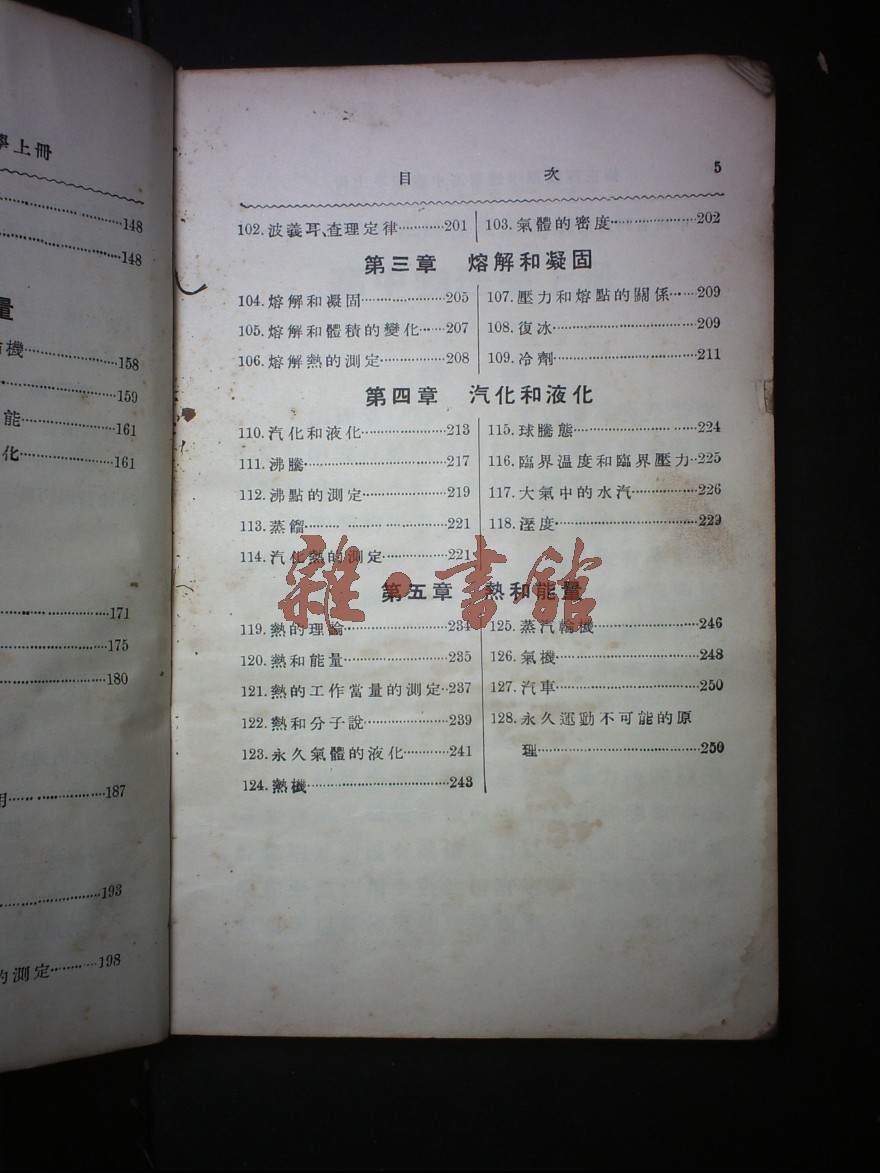 學上冊
148
148
量
機 158
159
能 161
化 161
171
175
180
用 187
193
的測定 198
目 次 5
102. 波義耳、查理定律 201
103. 氣體的密度 202
第三章 熔解和凝固
104. 熔解和凝固 205
105. 熔解和體積的變化 207
106. 熔解熱的測定 208
107. 壓力和熔點的關係 209
108. 復冰 209
109. 冷劑 211
第四章 汽化和液化
110. 汽化和液化 213
111. 沸騰 217
112. 沸點的測定 219
113. 蒸餾 221
114. 汽化熱的測定 221
115. 球騰態 224
116. 臨界温度和臨界壓力 225
117. 大氣中的水汽 226
118. 溼度 229
第五章 熱和能量
119. 熱的理論 231
120. 熱和能量 235
121. 熱的工作當量的測定 237
122. 熱和分子說 239
123. 永久氣體的液化 241
124. 熱機 243
125. 蒸汽輪機 246
126. 氣機 248
127. 汽車 250
128. 永久運動不可能的原
理 250
雜·書館